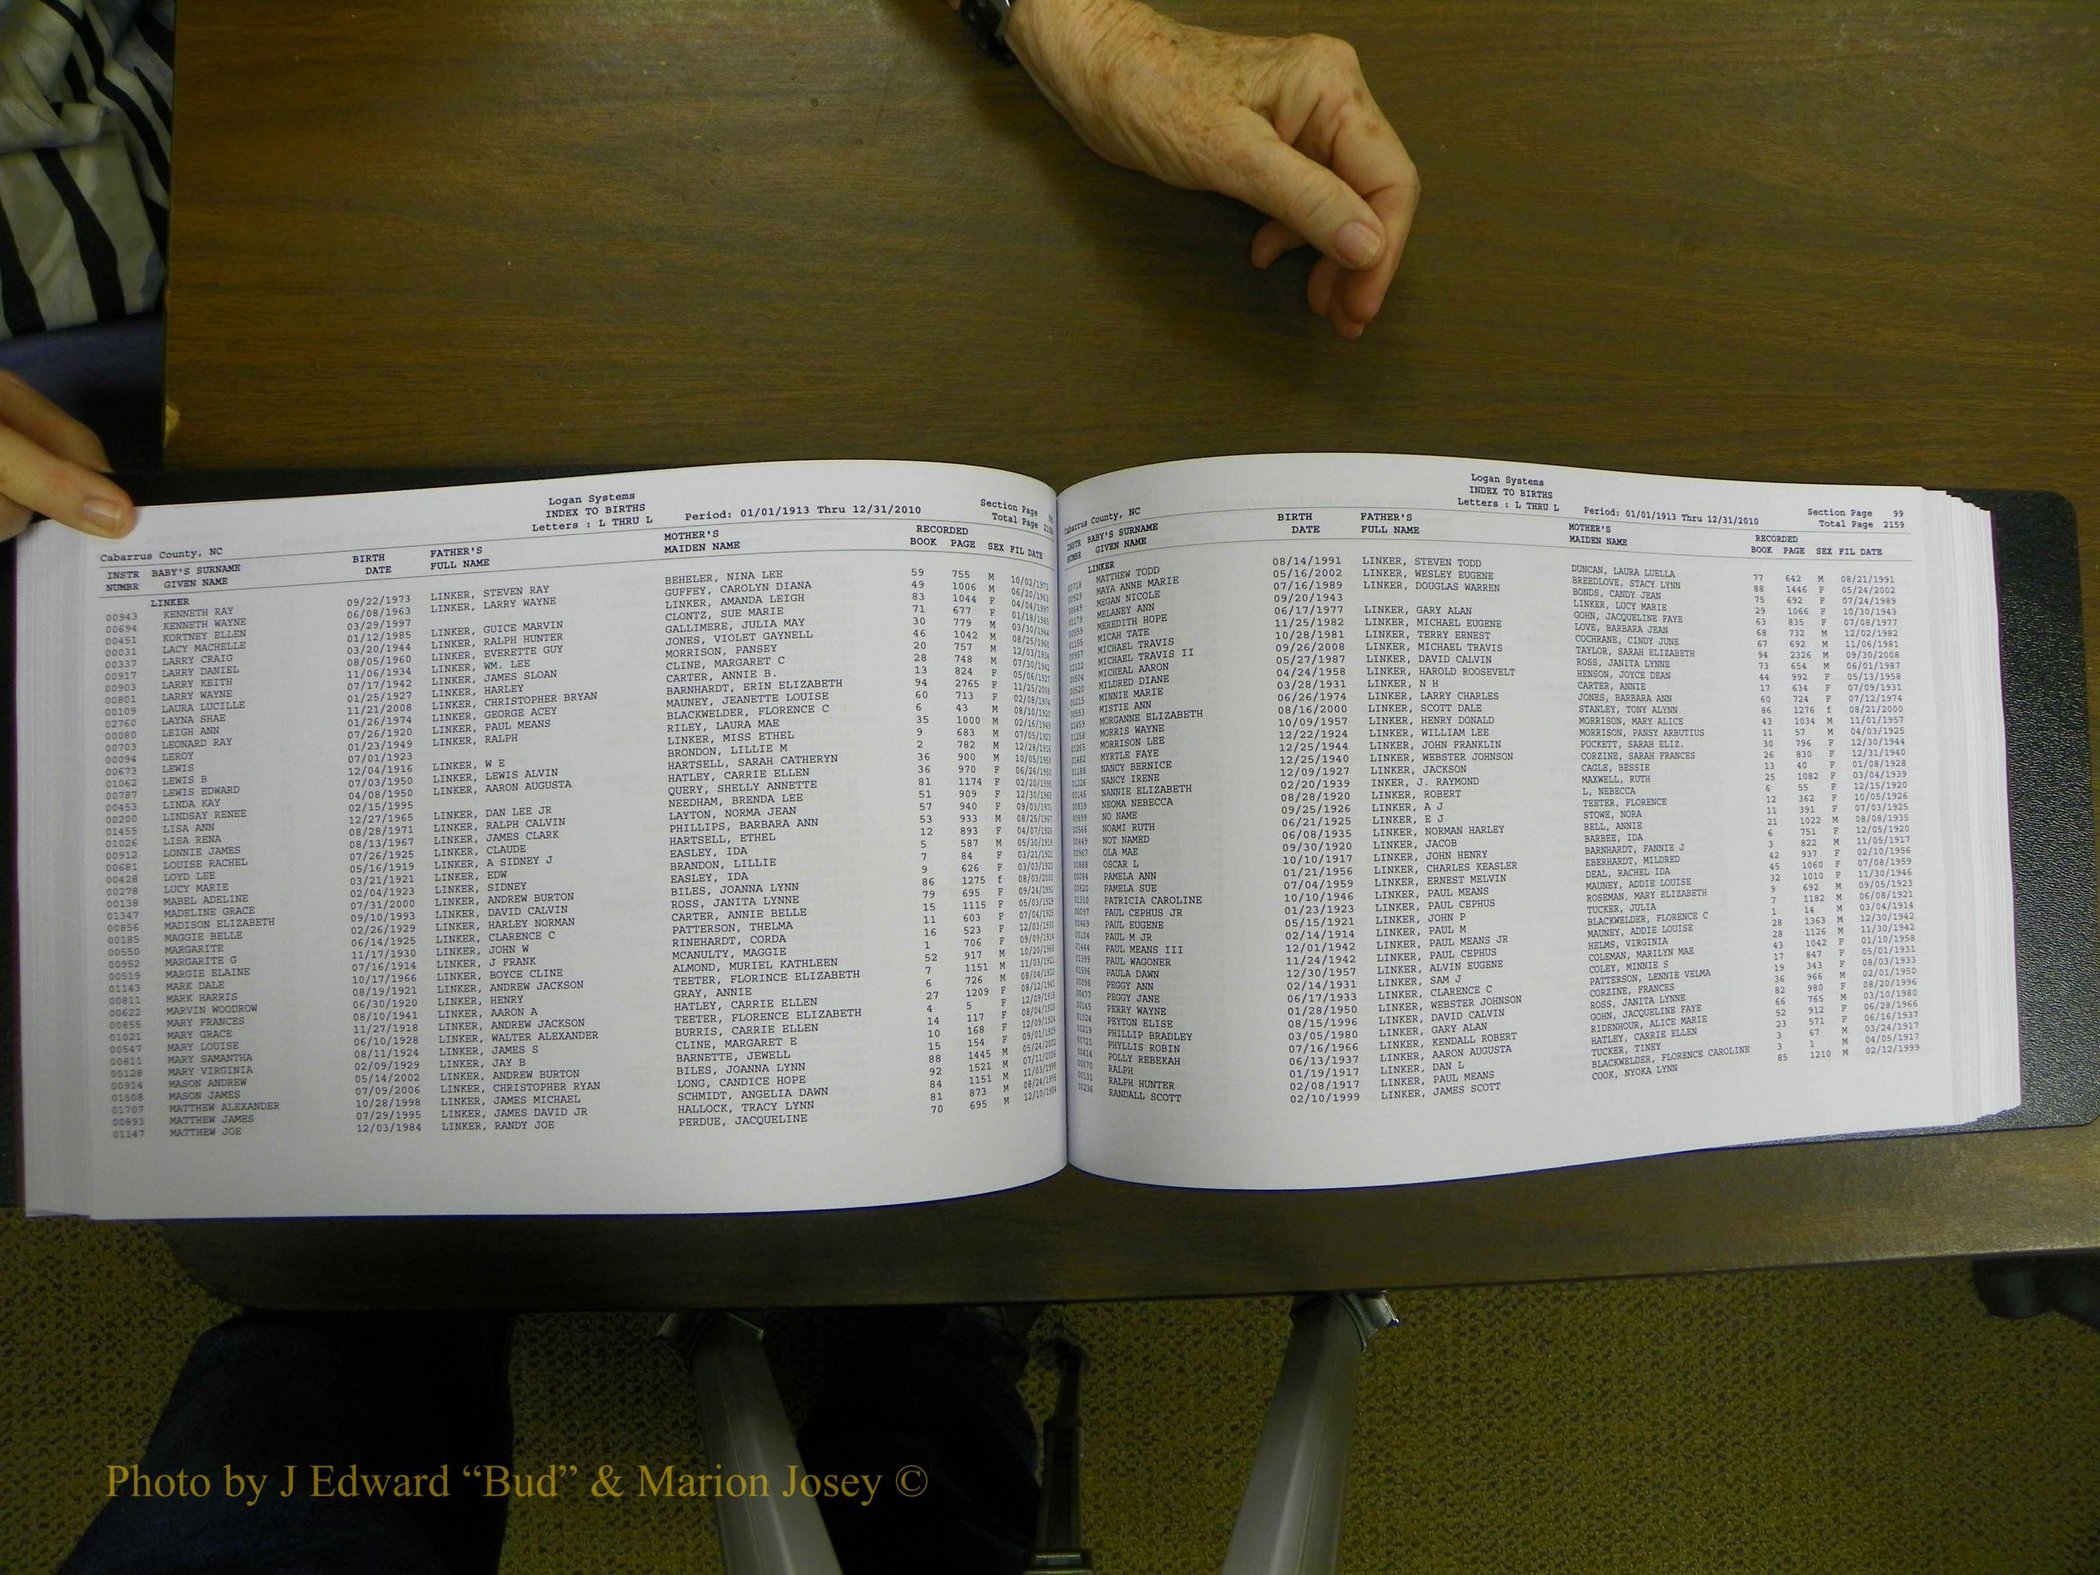 Logan Systems
INDEX TO BIRTHS
Cabarrus County, NC Letters : L THRU L Period: 01/01/1913 Thru 12/31/2010 Section Page
Total Page
INSTR BABY'S SURNAME BIRTH FATHER'S MOTHER'S RECORDED
NUMBR GIVEN NAME DATE FULL NAME MAIDEN NAME BOOK PAGE SEX FIL DATE
LINKER
00943 KENNETH RAY 09/22/1973 LINKER, STEVEN RAY BEHELER, NINA LEE 59 755 M 10/02/1973
00694 KENNETH WAYNE 06/08/1963 LINKER, LARRY WAYNE GUFFEY, CAROLYN DIANA 49 1006 M 06/20/1963
00451 KORTNEY ELLEN 03/29/1997 LINKER, AMANDA LEIGH 83 1044 F 04/04/1997
00031 LACY MACHELLE 01/12/1985 LINKER, GUICE MARVIN CLONTZ, SUE MARIE 71 677 F 01/18/1985
00337 LARRY CRAIG 03/20/1944 LINKER, RALPH HUNTER GALLIMERE, JULIA MAY 30 779 M 03/30/1944
00917 LARRY DANIEL 08/05/1960 LINKER, EVERETTE GUY JONES, VIOLET GAYNELL 46 1042 M 08/25/1960
00903 LARRY KEITH 11/06/1934 LINKER, WM. LEE MORRISON, PANSEY 20 757 M 12/03/1934
00801 LARRY WAYNE 07/17/1942 LINKER, JAMES SLOAN CLINE, MARGARET C 28 748 M 07/30/1942
00109 LAURA LUCILLE 01/25/1927 LINKER, HARLEY CARTER, ANNIE B. 13 824 F 05/06/1927
02760 LAYNA SHAE 11/21/2008 LINKER, CHRISTOPHER BRYAN BARNHARDT, ERIN ELIZABETH 94 2765 F 11/25/2008
00080 LEIGH ANN 01/26/1974 LINKER, GEORGE ACEY MAUNEY, JEANETTE LOUISE 60 713 F 02/08/1974
00703 LEONARD RAY 07/26/1920 LINKER, PAUL MEANS BLACKWELDER, FLORENCE C 6 43 M 08/10/1920
00094 LEROY 01/23/1949 LINKER, RALPH RILEY, LAURA MAE 35 1000 M 02/16/1949
00673 LEWIS 07/01/1923 LINKER, MISS ETHEL 9 683 M 07/05/1923
01062 LEWIS B 12/04/1916 LINKER, W E BRONDON, LILLIE M 2 782 M 12/28/1916
00787 LEWIS EDWARD 07/03/1950 LINKER, LEWIS ALVIN HARTSELL, SARAH CATHERYN 36 900 M 10/05/1950
00453 LINDA KAY 04/08/1950 LINKER, AARON AUGUSTA HATLEY, CARRIE ELLEN 36 970 F 06/26/1950
00200 LINDSAY RENEE 02/15/1995 QUERY, SHELLY ANNETTE 81 1174 F 02/20/1995
01455 LISA ANN 12/27/1965 LINKER, DAN LEE JR NEEDHAM, BRENDA LEE 51 909 F 12/30/1965
01026 LISA RENA 08/28/1971 LINKER, RALPH CALVIN LAYTON, NORMA JEAN 57 940 F 09/03/1971
00912 LONNIE JAMES 08/13/1967 LINKER, JAMES CLARK PHILLIPS, BARBARA ANN 53 933 M 08/25/1967
00681 LOUISE RACHEL 07/26/1925 LINKER, CLAUDE HARTSELL, ETHEL 12 893 F 04/07/1926
00428 LOYD LEE 05/16/1919 LINKER, A SIDNEY J EASLEY, IDA 5 587 M 05/30/1919
00278 LUCY MARIE 03/21/1921 LINKER, EDW BRANDON, LILLIE 7 84 F 03/21/1921
00138 MABEL ADELINE 02/04/1923 LINKER, SIDNEY EASLEY, IDA 9 626 F 03/03/1923
01347 MADELINE GRACE 07/31/2000 LINKER, ANDREW BURTON BILES, JOANNA LYNN 86 1275 f 08/03/2000
00856 MADISON ELIZABETH 09/10/1993 LINKER, DAVID CALVIN ROSS, JANITA LYNNE 79 695 F 09/24/1993
00185 MAGGIE BELLE 02/26/1929 LINKER, HARLEY NORMAN CARTER, ANNIE BELLE 15 1115 F 05/03/1929
00550 MARGARITE 06/14/1925 LINKER, CLARENCE C PATTERSON, THELMA 11 603 F 07/04/1925
00952 MARGARITE G 11/17/1930 LINKER, JOHN W RINEHARDT, CORDA 16 523 F 12/03/1930
00519 MARGIE ELAINE 07/16/1914 LINKER, J FRANK MCANULTY, MAGGIE 1 706 F 09/09/1914
01143 MARK DALE 10/17/1966 LINKER, BOYCE CLINE ALMOND, MURIEL KATHLEEN 52 917 M 10/20/1966
00811 MARK HARRIS 08/19/1921 LINKER, ANDREW JACKSON TEETER, FLORINCE ELIZABETH 7 1151 M 11/03/1921
00622 MARVIN WOODROW 06/30/1920 LINKER, HENRY GRAY, ANNIE 6 726 M 08/04/1920
00855 MARY FRANCES 08/10/1941 LINKER, AARON A HATLEY, CARRIE ELLEN 27 1209 F 08/12/1941
01021 MARY GRACE 11/27/1918 LINKER, ANDREW JACKSON TEETER, FLORENCE ELIZABETH 4 5 F 12/09/1918
00547 MARY LOUISE 06/10/1928 LINKER, WALTER ALEXANDER BURRIS, CARRIE ELLEN 14 117 F 08/04/1928
00811 MARY SAMANTHA 08/11/1924 LINKER, JAMES S CLINE, MARGARET E 10 168 F 12/09/1924
00128 MARY VIRGINIA 02/09/1929 LINKER, JAY B BARNETTE, JEWELL 15 154 F 09/01/1929
00914 MASON ANDREW 05/14/2002 LINKER, ANDREW BURTON BILES, JOANNA LYNN 88 1445 M 05/24/2002
01508 MASON JAMES 07/09/2006 LINKER, CHRISTOPHER RYAN LONG, CANDICE HOPE 92 1521 M 07/11/2006
01707 MATTHEW ALEXANDER 10/28/1998 LINKER, JAMES MICHAEL SCHMIDT, ANGELIA DAWN 84 1151 M 11/03/1998
00893 MATTHEW JAMES 07/29/1995 LINKER, JAMES DAVID JR HALLOCK, TRACY LYNN 81 873 M 08/24/1995
01147 MATTHEW JOE 12/03/1984 LINKER, RANDY JOE PERDUE, JACQUELINE 70 695 M 12/10/1984
Logan Systems
INDEX TO BIRTHS
Cabarrus County, NC Letters : L THRU L Period: 01/01/1913 Thru 12/31/2010 Section Page 99
Total Page 2159
INSTR BABY'S SURNAME BIRTH FATHER'S MOTHER'S RECORDED
NUMBR GIVEN NAME DATE FULL NAME MAIDEN NAME BOOK PAGE SEX FIL DATE
LINKER
00718 MATTHEW TODD 08/14/1991 LINKER, STEVEN TODD DUNCAN, LAURA LUELLA 77 642 M 08/21/1991
00929 MAYA ANNE MARIE 05/16/2002 LINKER, WESLEY EUGENE BREEDLOVE, STACY LYNN 88 1446 F 05/24/2002
00649 MEGAN NICOLE 07/16/1989 LINKER, DOUGLAS WARREN BONDS, CANDY JEAN 75 692 F 07/24/1989
01179 MELANEY ANN 09/20/1943 LINKER, LUCY MARIE 29 1066 F 10/30/1943
00559 MEREDITH HOPE 06/17/1977 LINKER, GARY ALAN GOHN, JACQUELINE FAYE 63 835 F 07/08/1977
01155 MICAH TATE 11/25/1982 LINKER, MICHAEL EUGENE LOVE, BARBARA JEAN 68 732 M 12/02/1982
00957 MICHAEL TRAVIS 10/28/1981 LINKER, TERRY ERNEST COCHRANE, CINDY JUNE 67 692 M 11/06/1981
02322 MICHAEL TRAVIS II 09/26/2008 LINKER, MICHAEL TRAVIS TAYLOR, SARAH ELIZABETH 94 2326 M 09/30/2008
00504 MICHEAL AARON 05/27/1987 LINKER, DAVID CALVIN ROSS, JANITA LYNNE 73 654 M 06/01/1987
00520 MILDRED DIANE 04/24/1958 LINKER, HAROLD ROOSEVELT HENSON, JOYCE DEAN 44 992 F 05/13/1958
00215 MINNIE MARIE 03/28/1931 LINKER, N H CARTER, ANNIE 17 634 F 07/09/1931
00553 MISTIE ANN 06/26/1974 LINKER, LARRY CHARLES JONES, BARBARA ANN 60 724 F 07/12/1974
01459 MORGANNE ELIZABETH 08/16/2000 LINKER, SCOTT DALE STANLEY, TONY ALYNN 86 1276 f 08/21/2000
01258 MORRIS WAYNE 10/09/1957 LINKER, HENRY DONALD MORRISON, MARY ALICE 43 1034 M 11/01/1957
01265 MORRISON LEE 12/22/1924 LINKER, WILLIAM LEE MORRISON, PANSY ARBUTIUS 11 57 M 04/03/1925
01482 MYRTLE FAYE 12/25/1944 LINKER, JOHN FRANKLIN PUCKETT, SARAH ELIZ. 30 796 F 12/30/1944
01188 NANCY BERNICE 12/25/1940 LINKER, WEBSTER JOHNSON CORZINE, SARAH FRANCES 26 830 F 12/31/1940
01226 NANCY IRENE 12/09/1927 LINKER, JACKSON CAGLE, BESSIE 13 40 F 01/08/1928
00146 NANNIE ELIZABETH 02/20/1939 INKER, J. RAYMOND MAXWELL, RUTH 25 1082 F 03/04/1939
00839 NEOMA NEBECCA 08/28/1920 LINKER, ROBERT L, NEBECCA 6 55 F 12/15/1920
00899 NO NAME 09/25/1926 LINKER, A J TEETER, FLORENCE 12 362 F 10/05/1926
00566 NOAMI RUTH 06/21/1925 LINKER, E J STOWE, NORA 11 391 F 07/03/1925
00449 NOT NAMED 06/08/1935 LINKER, NORMAN HARLEY BELL, ANNIE 21 1022 M 08/08/1935
00967 OLA MAE 09/30/1920 LINKER, JACOB BARBEE, IDA 6 751 F 12/05/1920
00888 OSCAR L 10/10/1917 LINKER, JOHN HENRY BARNHARDT, FANNIE J 3 822 M 11/05/1917
00084 PAMELA ANN 01/21/1956 LINKER, CHARLES KEASLER EBERHARDT, MILDRED 42 937 F 02/10/1956
00820 PAMELA SUE 07/04/1959 LINKER, ERNEST MELVIN DEAL, RACHEL IDA 45 1060 F 07/08/1959
01310 PATRICIA CAROLINE 10/10/1946 LINKER, PAUL MEANS MAUNEY, ADDIE LOUISE 32 1010 F 11/30/1946
00097 PAUL CEPHUS JR 01/23/1923 LINKER, PAUL CEPHUS ROSEMAN, MARY ELIZABETH 9 692 M 09/05/1923
00469 PAUL EUGENE 05/15/1921 LINKER, JOHN P TUCKER, JULIA 7 1182 M 06/08/1921
00104 PAUL M JR 02/14/1914 LINKER, PAUL M BLACKWELDER, FLORENCE C 1 14 M 03/04/1914
01444 PAUL MEANS III 12/01/1942 LINKER, PAUL MEANS JR MAUNEY, ADDIE LOUISE 28 1363 M 12/30/1942
01399 PAUL WAGONER 11/24/1942 LINKER, PAUL CEPHUS HELMS, VIRGINIA 28 1126 M 11/30/1942
01596 PAULA DAWN 12/30/1957 LINKER, ALVIN EUGENE COLEMAN, MARILYN MAE 43 1042 F 01/10/1958
00098 PEGGY ANN 02/14/1931 LINKER, SAM J COLEY, MINNIE S 17 847 F 05/01/1931
00477 PEGGY JANE 06/17/1933 LINKER, CLARENCE C PATTERSON, LENNIE VELMA 19 343 F 08/03/1933
00145 PERRY WAYNE 01/28/1950 LINKER, WEBSTER JOHNSON CORZINE, FRANCES 36 966 M 02/01/1950
01024 PEYTON ELISE 08/15/1996 LINKER, DAVID CALVIN ROSS, JANITA LYNNE 82 980 F 08/20/1996
00219 PHILLIP BRADLEY 03/05/1980 LINKER, GARY ALAN GOHN, JACQUELINE FAYE 66 765 M 03/10/1980
00721 PHYLLIS ROBIN 07/16/1966 LINKER, KENDALL ROBERT RIDENHOUR, ALICE MARIE 52 912 F 06/28/1966
00414 POLLY REBEKAH 06/13/1937 LINKER, AARON AUGUSTA HATLEY, CARRIE ELLEN 23 571 F 06/16/1937
00070 RALPH 01/19/1917 LINKER, DAN L TUCKER, TINEY 3 67 M 03/24/1917
00131 RALPH HUNTER 02/08/1917 LINKER, PAUL MEANS BLACKWELDER, FLORENCE CAROLINE 3 1 M 04/05/1917
00236 RANDALL SCOTT 02/10/1999 LINKER, JAMES SCOTT COOK, NYOKA LYNN 85 1210 M 02/12/1999
Photo by J Edward “Bud” & Marion Josey ©